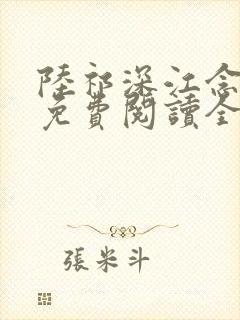 陸祁深江念
免費閱讀全
張米斗